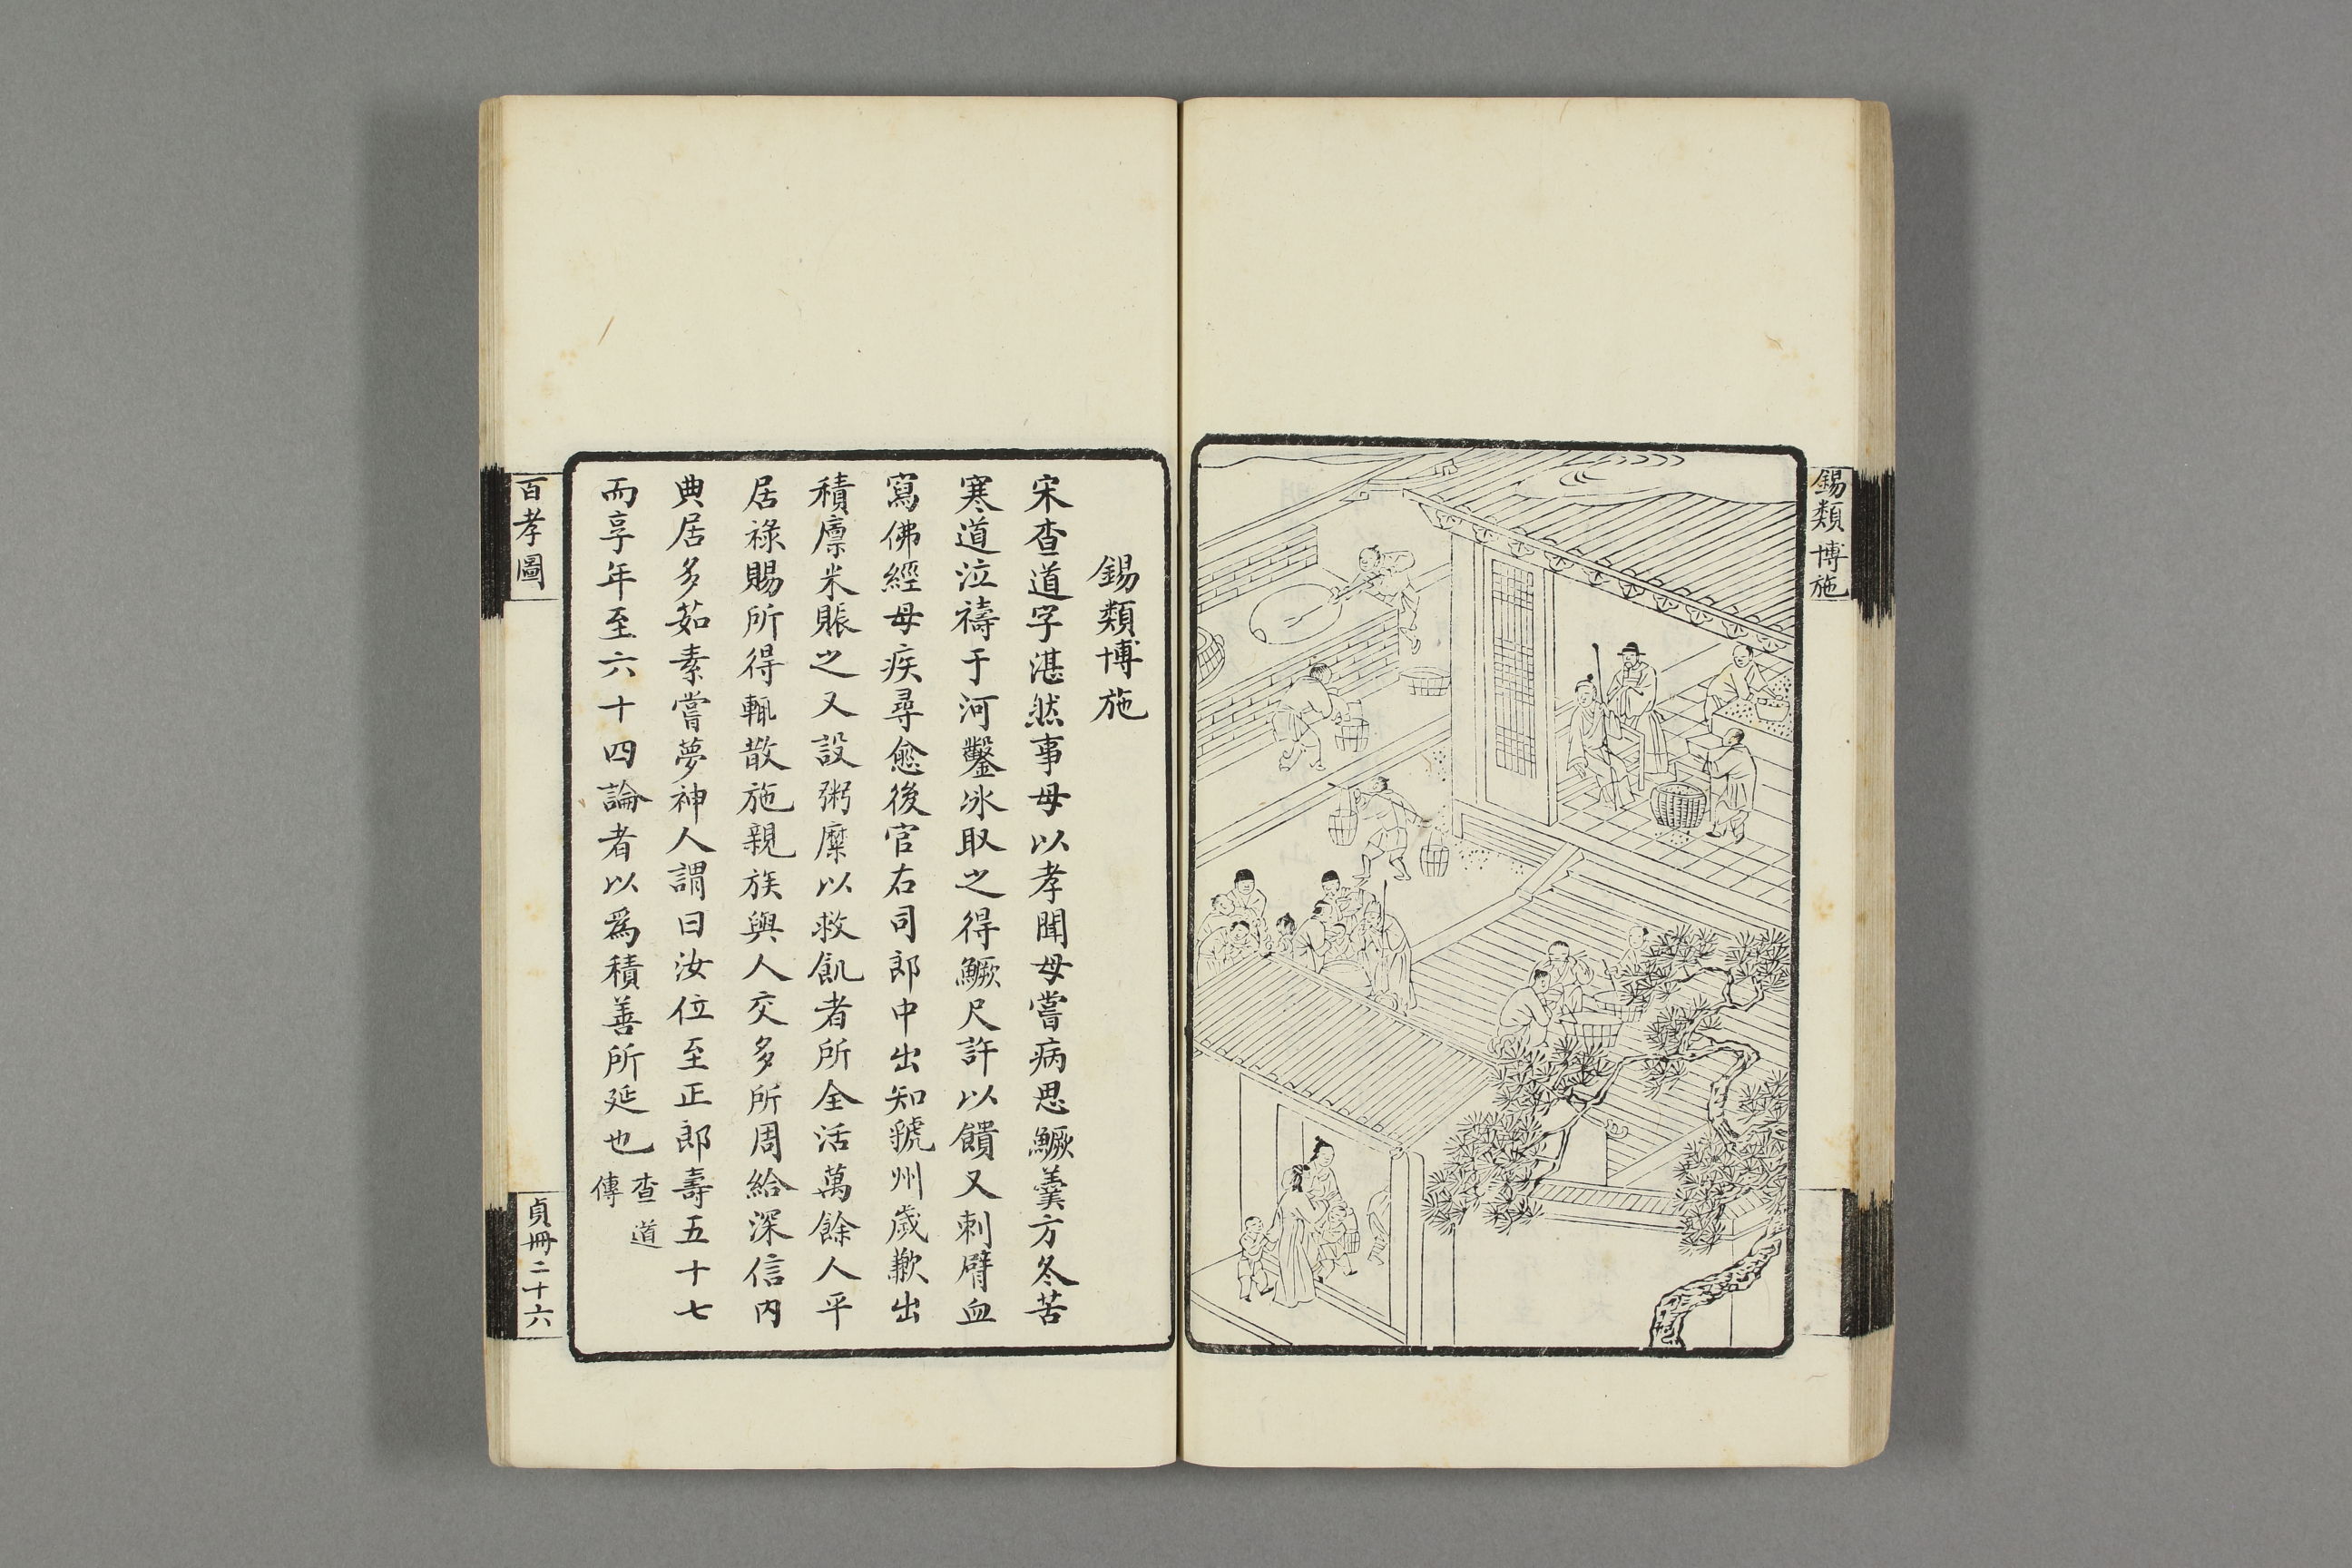 錫類博施
錫類博施
宋查道字湛然事母以孝聞母嘗病思鱖羹方冬苦
寒道泣禱于河鑿冰取之得鱖尺許以饋又刺臂血
寫佛經母疾尋愈後官右司郎中出知虢州歲歉出
積廪米賬之又設粥糜以救飢者所全活萬餘人平
居祿賜所得輒散施親族與人交多所周給深信内
典居多茹素嘗夢神人謂曰汝位至正郎壽五十七
而享年至六十四論者以爲積善所延也查道傳
百孝圖
貞冊二十六